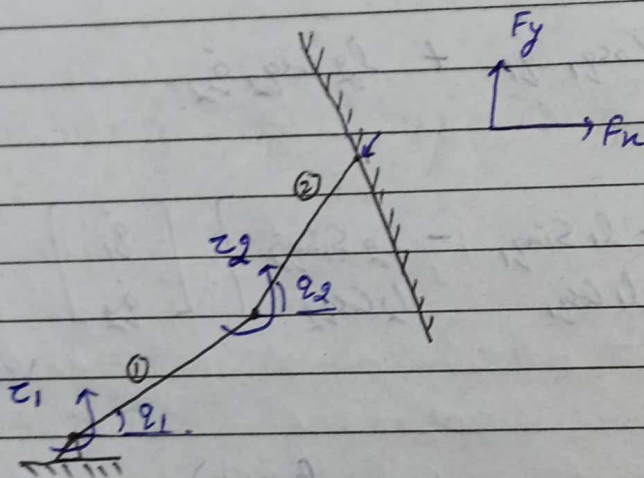 Fy
Fx
②
τ2
q2
①
τ1
q1